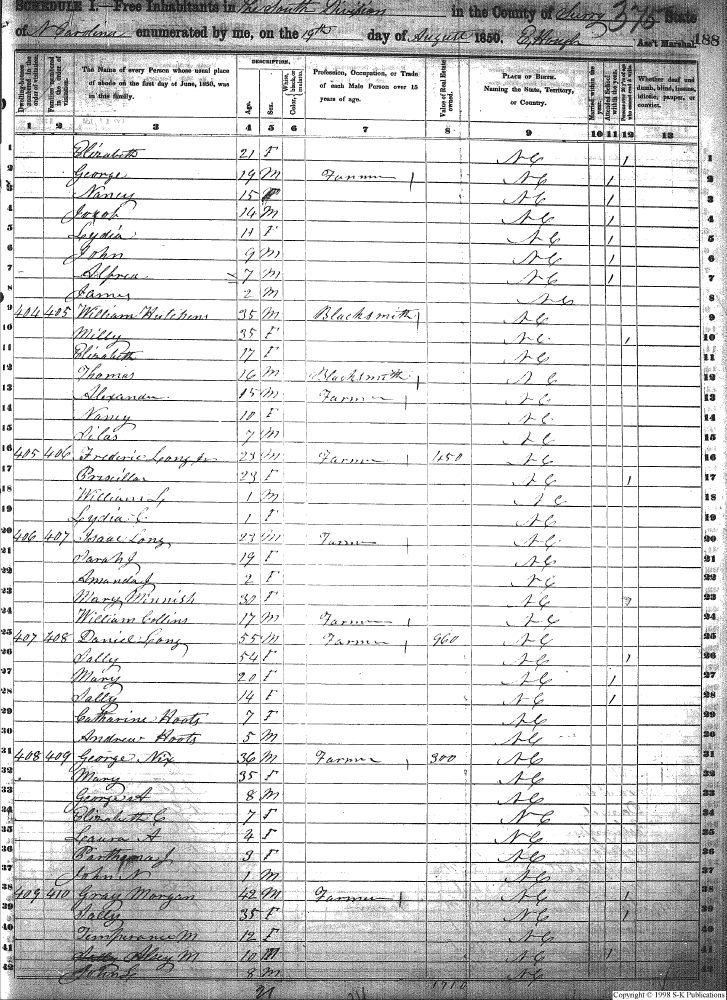 SCHEDULE I.—Free Inhabitants in The South Division in the County of Surry State 375
of N Carolina enumerated by me, on the 19th day of August 1850. Ass't Marshal. 188
Dwelling-houses numbered in the order of visitation.
Families numbered in the order of visitation.
The Name of every Person whose usual place of abode on the first day of June, 1850, was in this family.
DESCRIPTION.
Age.
Sex.
Color,
Profession, Occupation, or Trade of each Male Person over 15 years of age.
Value of Real Estate owned.
PLACE OF BIRTH.
Naming the State, Territory, or Country.
Married within the year.
Attended School within the year.
Whether deaf and dumb, blind, insane, idiotic, pauper, or convict.
1 2 3 4 5 6 7 8 9 10 11 12 13
1 Elizabeth 21 F NC 1 1
2 George 19 M Farmer NC 1 2
3 Nancy 15 F NC 1 3
4 Jacob 14 M NC 1 4
5 Lydia 11 F NC 1 5
6 John 9 M NC 1 6
7 Alfred 7 M NC 1 7
8 James 2 M NC 8
9 404 405 William Hutchens 35 M Blacksmith NC 9
10 Milly 35 F NC 1 10
11 Elizabeth 17 F NC 11
12 Thomas 16 M Blacksmith NC 12
13 Alexander 15 M Farmer NC 13
14 Nancy 10 F NC 14
15 Silas 7 M NC 15
16 405 406 Frederic Long Jr 23 M Farmer 450 NC 16
17 Priscilla 23 F NC 1 17
18 William L 1 M NC 18
19 Lydia C 1 F NC 19
20 406 407 Isaac Long 23 M Farmer NC 20
21 Sarah J 19 F NC 21
22 Amanda J 2 F NC 22
23 Mary Minnish 30 F NC 23
24 William Collins 17 M Farmer NC 24
25 407 408 Daniel Long 55 M Farmer 960 NC 25
26 Sally 54 F NC 1 26
27 Mary 20 F NC 1 27
28 Sally 14 F NC 1 28
29 Catharine Hoots 7 F NC 29
30 Andrew Hoots 5 M NC 30
31 408 409 George Nix 36 M Farmer 300 NC 31
32 Mary 35 F NC 32
33 George A 8 M NC 33
34 Elizabeth C 7 F NC 34
35 Laura A 4 F NC 35
36 Parthena J 3 F NC 36
37 John N 1 M NC 37
38 409 410 Gray Morgan 42 M Farmer NC 1 38
39 Sally 35 F NC 1 39
40 Temperance M 12 F NC 40
41 M 10 M NC 1 41
42 John L 8 M NC 42
21 1710
Copyright © 1998 S-K Publications